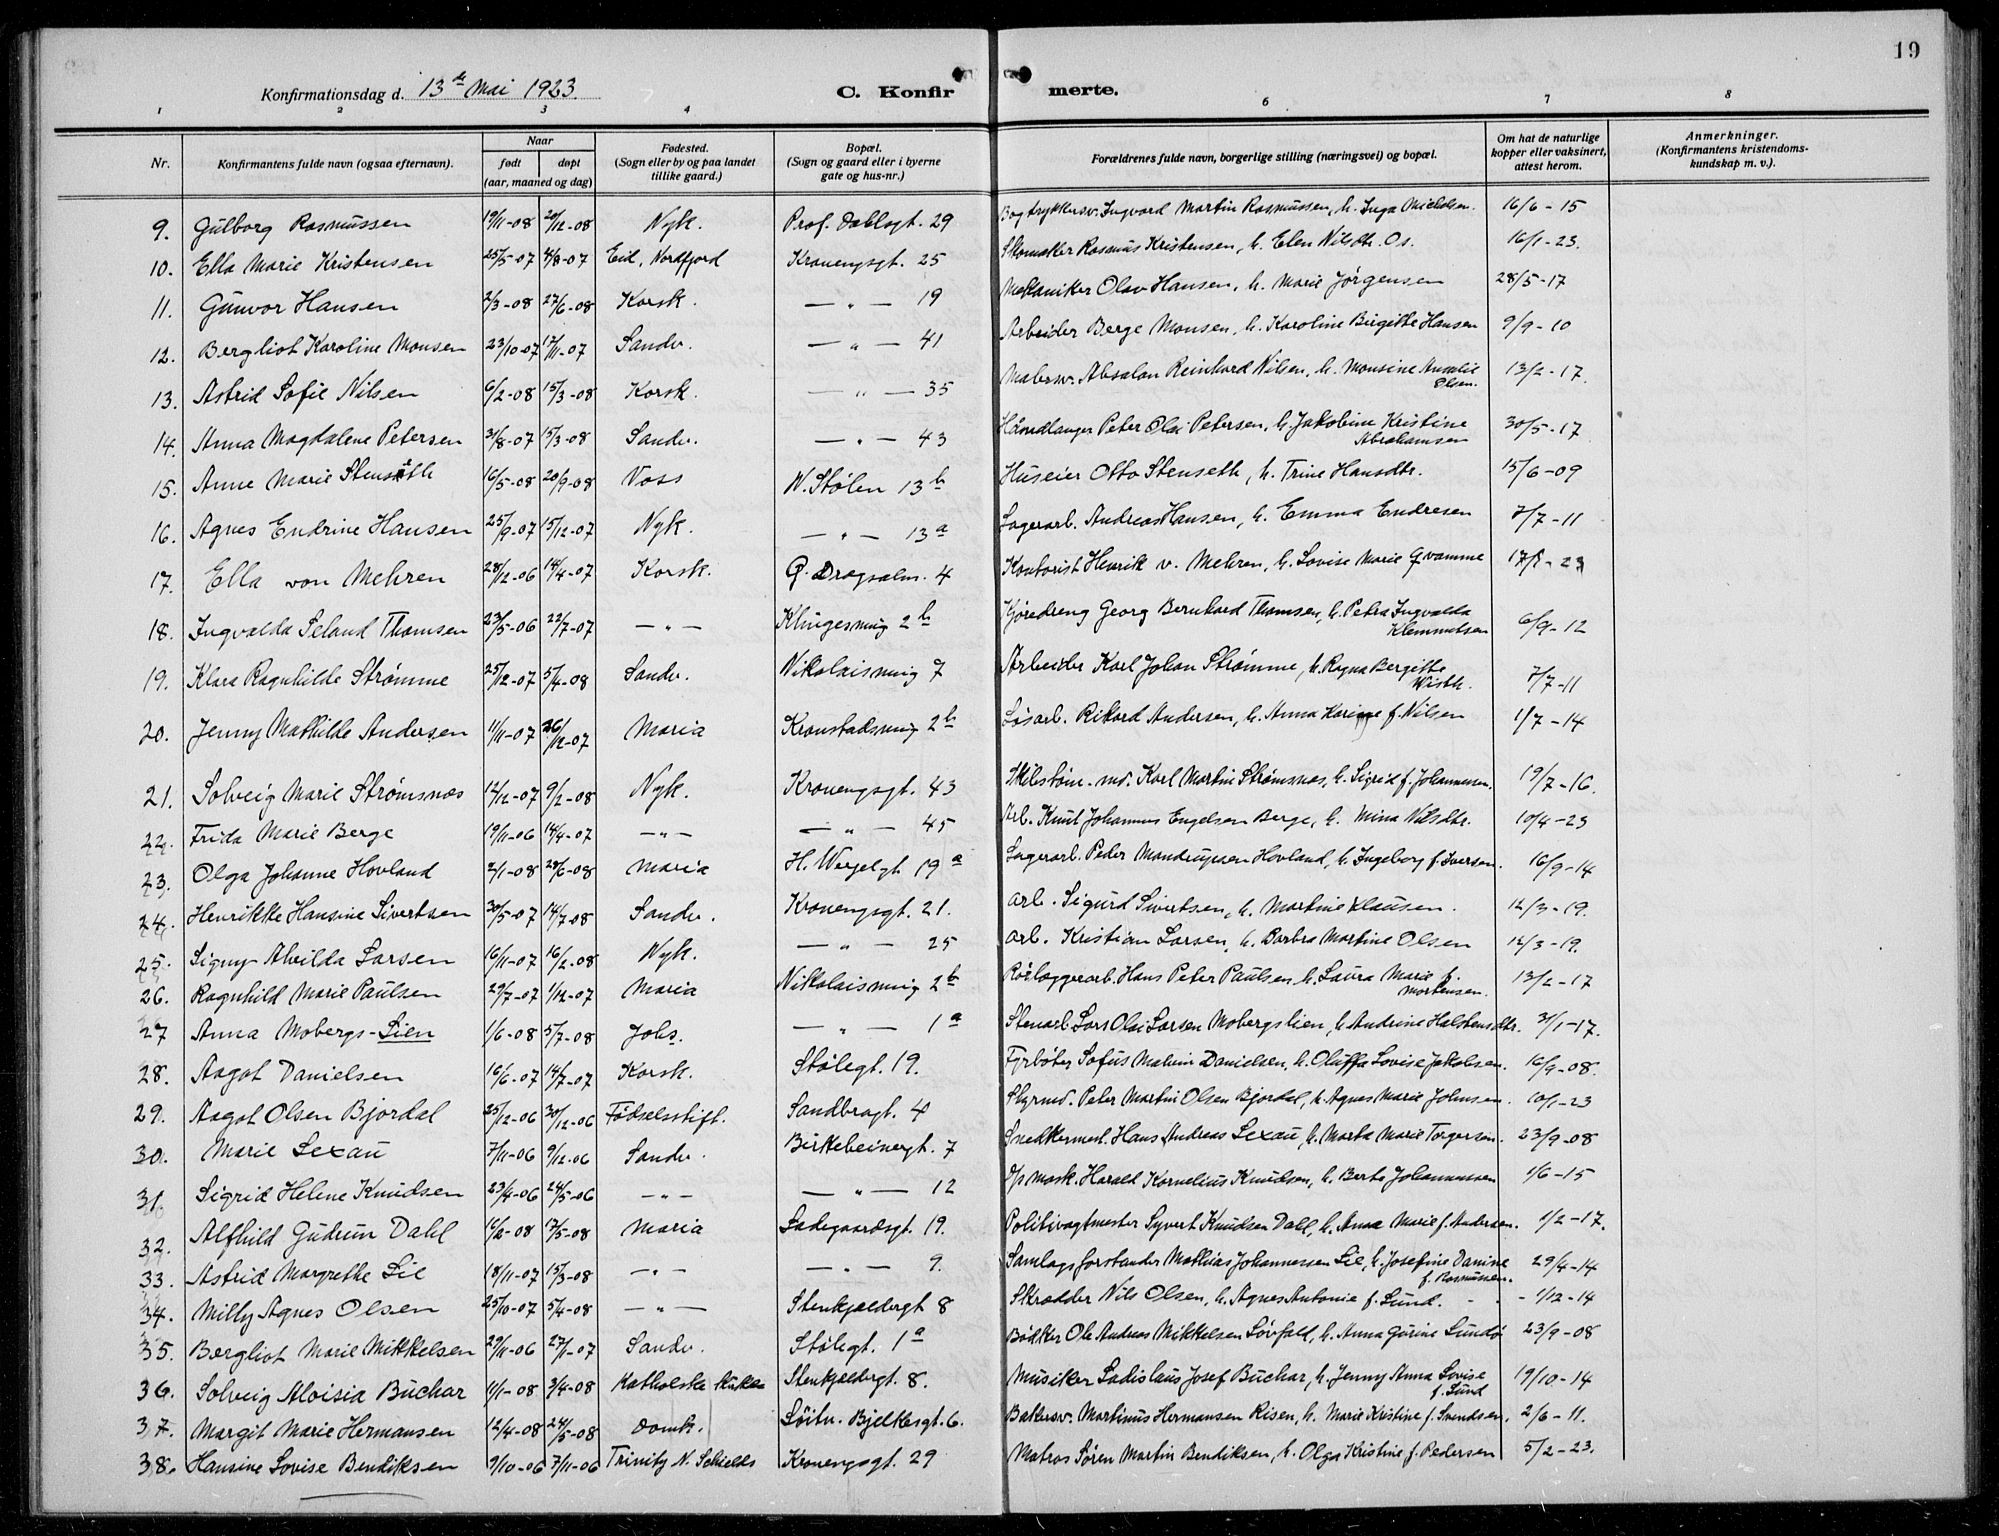 19
Konfirmationsdag d. 13de Mai 1923. C. Konfirmerte.
1 2 3 4 6 7 8
Nr. Konfirmantens fulde navn (ogsaa efternavn). Naar født døpt (aar, maaned og dag) Fødested. (Sogn eller by og paa landet tillike gaard.) Bopæl. (Sogn og gaard eller i byerne gate og hus-nr.) Forældrenes fulde navn, borgerlige stilling (næringsvei) og bopæl. Om hat de naturlige kopper eller vaksinert, attest herom. Anmerkninger. (Konfirmantens kristendomskundskap m. v.).
9. Gulborg Rasmussen 19/11-08 20/12-08 Nyk. Prof. Dahlsgt. 29 Bogtrykkersv. Ingvard Martin Rasmussen, h. Inga Michelsen. 16/6-15
10. Ella Marie Kristensen 25/5-07 4/8-07 Eid, Nordfjord Kronengsgt. 25 Skomaker Rasmus Kristensen, h. Elen Nilsdtr. Os. 16/1-23.
11. Gunvor Hansen 2/3-08 27/6-08 Korsk. — " — 19 Mekaniker Olav Hansen, h. Marie Jørgensen 28/5-17
12. Bergliot Karoline Monsen 23/10-07 17/11-07 Sandv. — " — 41 Arbeider Berge Monsen, h. Karoline Birgitte Hansen 9/9-10
13. Astrid Sofie Nilsen 6/2-08 15/3-08 Korsk. — " — 35 Malersv. Absalon Reinhard Nilsen, h. Monsine Amalie Olsen. 13/2-17.
14. Anna Magdalene Petersen 31/8-07 15/3-08 Sandv. — " — 43 Haandlanger Peter Olai Petersen, h. Jakobine Kristine Abrahamsen 30/5-17
15. Anne Marie Stenseth 16/5-08 20/9-08 Voss W. Stølen 13b Huseier Otto Stenseth, h. Trine Hansdtr. 15/6-09
16. Agnes Endrine Hansen 25/9-07 15/12-07 Nyk. — " — 13a Lagerarb. Andreas Hansen, h. Emma Endresen 7/7-11
17. Ella von Mehren 28/12-06 14/4-07 Korsk. Q. Dragsalm. 4 Kontorist Henrik v. Mehren, h. Lovise Marie Qvamme
18. Ingvalda Seland Thomsen 23/5-06 22/7-07 — " — Klingesmug 2b Kjøredreng Georg Bernhard Thomsen, h. Petra Ingvalda Klemmetsen 6/9-12
19. Klara Ragnhilde Strømme 25/12-07 5/4-08 Sandv. Nikolaismug 7 Arbeider Karl Johan Strømme, h. Ragna Bergitte Wisth. 7/7-11
20. Jenny Mathilde Andersen 11/11-07 26/12-07 Maria Kronstadsmug 2b Løsarb. Rikard Andersen, h. Anna Karine f. Nilsen 1/7-14
21. Solveig Marie Strømsnes 12/12-07 9/2-08 Nyk. Kronengsgt. 43 Karl Martin Strømsnes, h. Sigrid f. Johannessen. 19/7-16.
22. Frida Marie Berge 19/11-06 14/4-07 — " — — " — 45 Arb. Knut Johannes Engelsen Berge, h. Mina Nilsdtr. 10/4-23
23. Olga Johanne Hovland 2/1-08 28/6-08 Maria H. Wergelgt. 19a Lagerarb. Peder Mandrupsen Hovland, h. Ingeborg f. Iversen. 16/9-14
24. Henrikke Hansine Sivertsen 30/5-07 14/7-08 Sandv. Kronengsgt. 21. Arb. Sigurd Sivertsen, h. Martine Klausen. 12/3-19.
25. Signy Alvilda Larsen 16/11-07 16/2-08 Nyk. — " — 25 Arb. Kristian Larsen, h. Barbra Martine Olsen 12/3-19.
26. Ragnhild Marie Paulsen 29/7-07 1/12-07 Maria Nikolaismug 2b Rørlæggerarb. Hans Peter Paulsen, h. Laura Marie f. Mortensen. 13/2-17
27 Anna Mobergs-Lien 1/6-08 5/7-08 Johs. — " — 1a Stenarb. Lars Olai Larsen Mobergslien, h. Andrine Halstensdtr. 31/1-17.
28. Aagot Danielsen 16/6-07 14/7-07 Korsk. Stølegt. 19. Fyrbøter Sofus Malvin Danielsen, h. Oluffa Lovise Jakobsen. 16/9-08.
29. Aagot Olsen Bjordal 25/12-06 30/12-06 Fødselsstift. Sandbrogt. 4 Styrmd. Peter Martin Olsen Bjordal, h. Agnes Marie Johnsen. 10/1-23
30. Marie Lexau 7/11-06 9/12-06 Sandv. Birkebeinergt. 7 Snedkermest. Hans Andreas Lexau, h. Marta Marie Torgersen. 23/9-08
31. Sigrid Helene Knudsen 23/4-06 24/5-06 — " — — " — 12 Harald Kornelius Knudsen, h. Berte Johannessen 1/6-15
32. Alfhild Gudrun Dahl 16/2-08 17/5-08 Maria Ladegaardsgt. 19. Politivagtmester Syvert Knudsen Dahl, h. Anna Marie f. Andersen. 1/2-17.
33. Astrid Margrethe Lie 18/11-07 15/3-08 — " — — " — 9. Samlagsforstander Mathias Johannessen Lie, h. Josefine Danine f. Rasmussen. 29/4-14
34. Milly Agnes Olsen 25/10-07 5/4-08 — " — Stenkjeldergt 8 Skrædder Nils Olsen, h. Agnes Antonie f. Lund. 1/12-14
35. Bergliot Marie Mikkelsen 29/11-06 27/1-07 Sandv. Stølegt. 1a Bødker Ole Andreas Mikkelsen Sørfold, h. Anna Gurine Lundø 23/9-08
36. Solveig Aloisia Buchar 11/1-08 3/4-08 Katholska kirken Stenkjeldergt. 8. Musiker Ladislaus Josef Buchar, h. Jenny Anna Lovise f. Lund 19/10-14
37. Margit Marie Hermansen 12/4-08 24/5-08 Domk. Søitv. Bjelkesgt. 6. Bakersv. Martinus Hermansen Risen, h. Marie Kristine f. Svendsen. 2/6-11.
38. Hansine Lovise Bendiksen 9/10-06 7/11-06 Trinity N. Schields Kronengsgt. 29 Matros Søren Martin Bendiksen, h. Olga Kristine f. Pedersen 5/2-23.